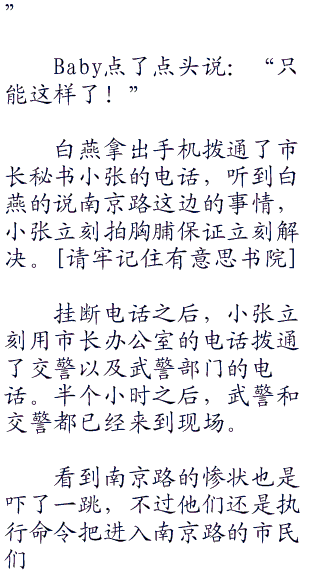 ”
Baby点了点头说：“只
能这样了！”
白燕拿出手机拨通了市
长秘书小张的电话，听到白
燕的说南京路这边的事情，
小张立刻拍胸脯保证立刻解
决。[请牢记住有意思书院]
挂断电话之后，小张立
刻用市长办公室的电话拨通
了交警以及武警部门的电
话。半个小时之后，武警和
交警都已经来到现场。
看到南京路的惨状也是
吓了一跳，不过他们还是执
行命令把进入南京路的市民
们